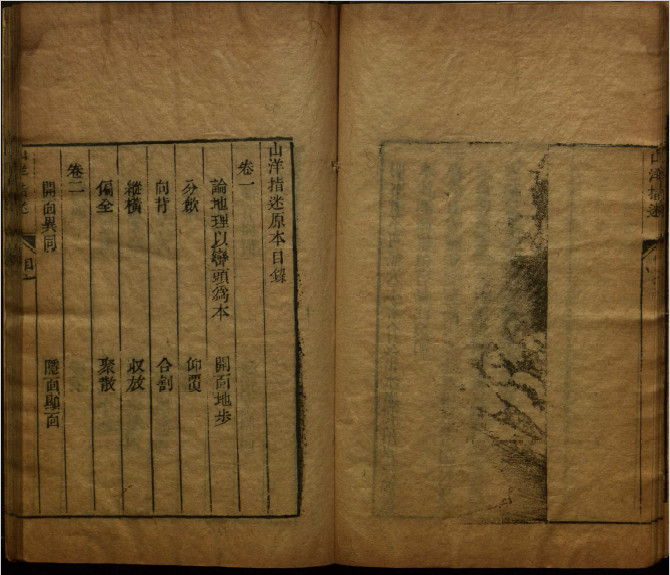 山洋指迷
山洋指迷原本目錄
卷一
論地理以巒頭爲本 開面地步
分歛 仰覆
向背 合割
縱橫 收放
偏全 聚散
卷二
開面異同 隱面顯面
山洋指迷
目